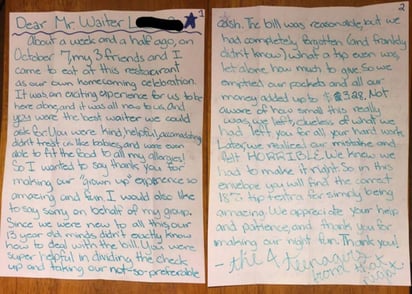 1
Dear Mr. Waiter L
About a week and a half ago, on
October 7, my 3 friends and I
came to eat at this restaurant
as our own homecoming celebration.
It was an exciting experience for us to be
here alone, and it was all new to us. And
you were the best waiter we could
ask for. You were kind, helpful, accomodating
didn't treat us like babies, and were even
able to fit the food to all my allergies!
So I wanted to say thank you for
making our "grown up" experience so
amazing and fun. I would also like
to say sorry on behalf of my group.
Since we were new to all this, our
13 year old minds didn't exactly know
how to deal with the bill. You were
super helpful in dividing the check
up and taking our not-so-preferable
2
cash. The bill was reasonable, but we
had completely forgotten (and frankly
didn't know) what a tip even was,
let alone how much to give. So we
emptied our pockets and all our
money added up to $3.28. Not
aware of how small this really
was, we left, clueless of what we
had left you for all your hard work.
Later, we realized our mistake and
felt HORRIBLE. We knew we
had to make it right. So in this
envelope you will find the correct
18% tip + extra for simply being
amazing. We appreciate your help
and patience, and thank you for
making our night fun. Thank you!
- the 4 teenagers
from that